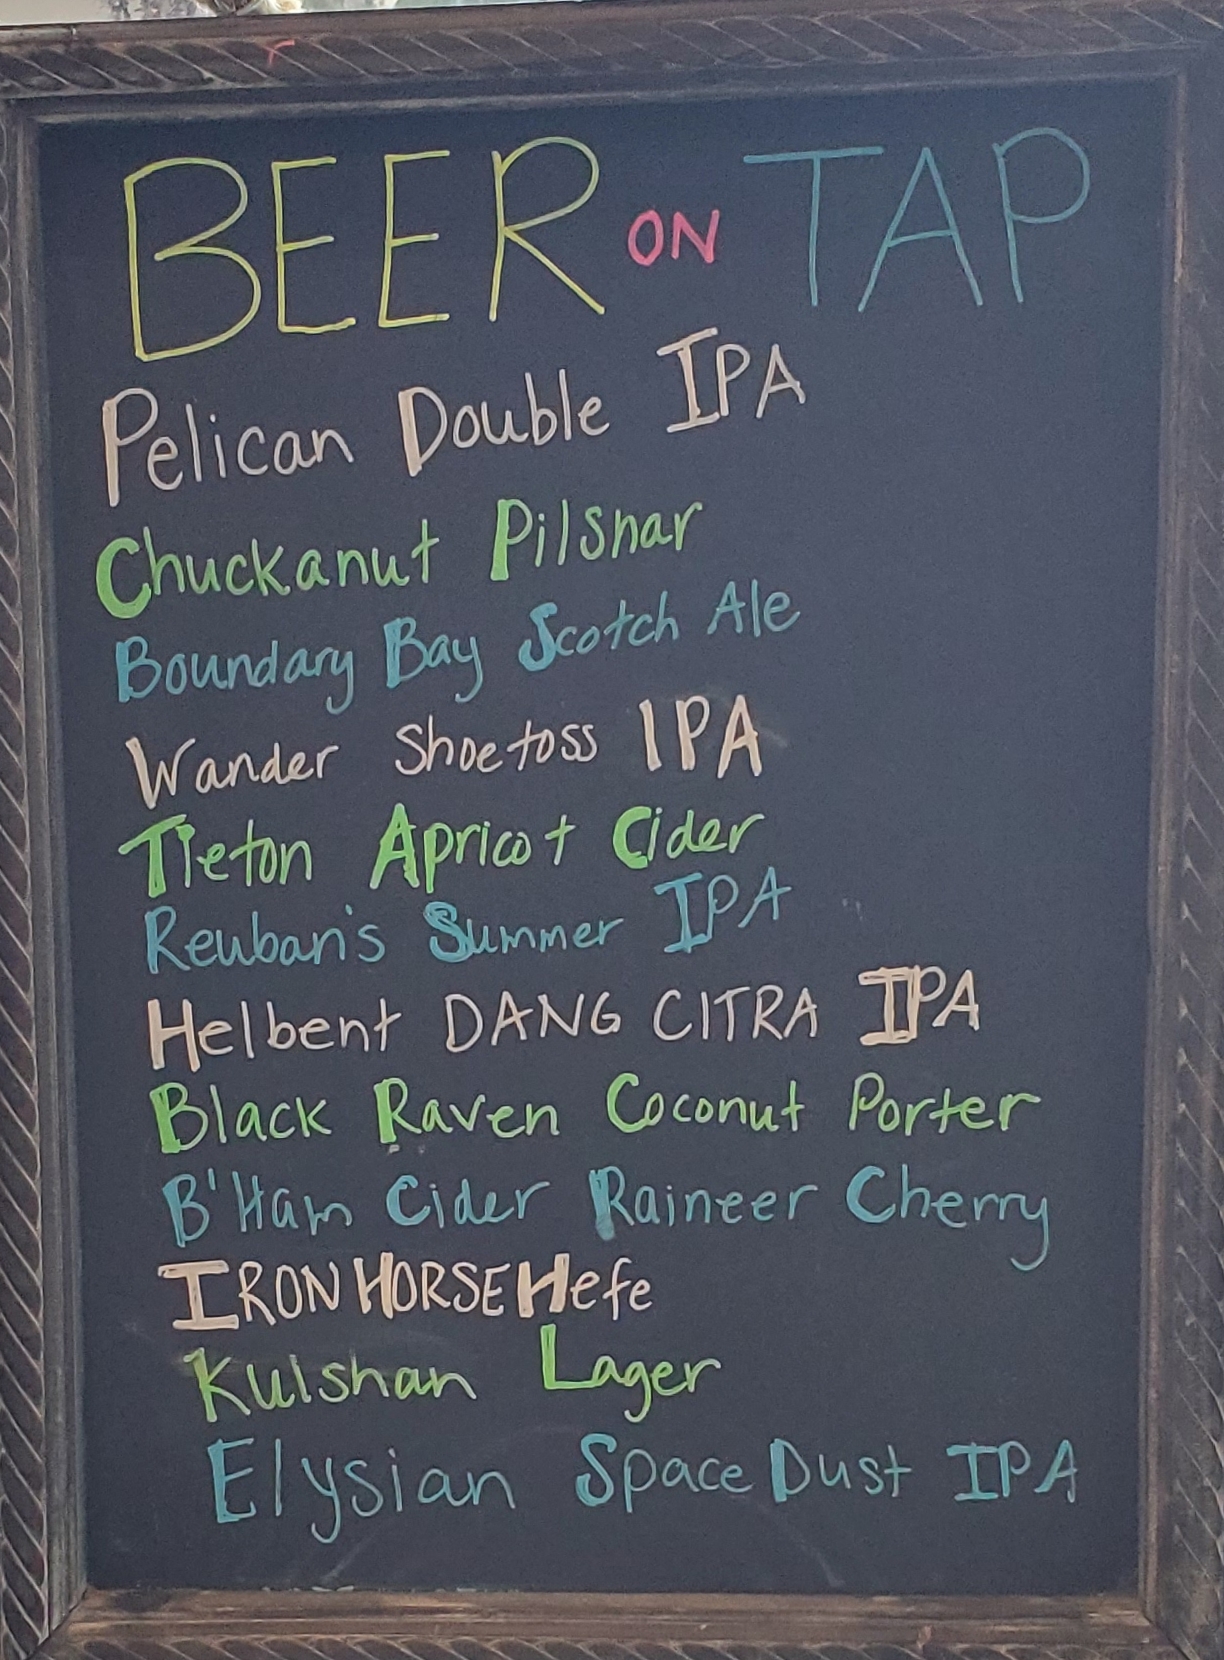 BEER ON TAP
Pelican Double IPA
Chuckanut Pilsnar
Boundary Bay Scotch Ale
Wander Shoetoss IPA
Tieton Apricot Cider
Reuban's Summer IPA
Helbent DANG CITRA IPA
Black Raven Coconut Porter
B'Ham Cider Raineer Cherry
IRON HORSE Hefe
Kulshan Lager
Elysian Space Dust IPA